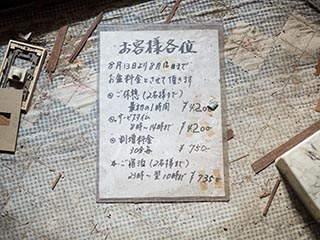 お客様各位
8月13日より8月16日まで
お盆料金とさせて頂きます
◎ご休憩(2名様まで)
最初の1時間 ¥4200
◎サービスタイム
8時〜14時まで ¥4200-
◎割増料金
30分毎 ¥750-
◎ご宿泊(2名様まで)
23時〜翌10時まで ¥735